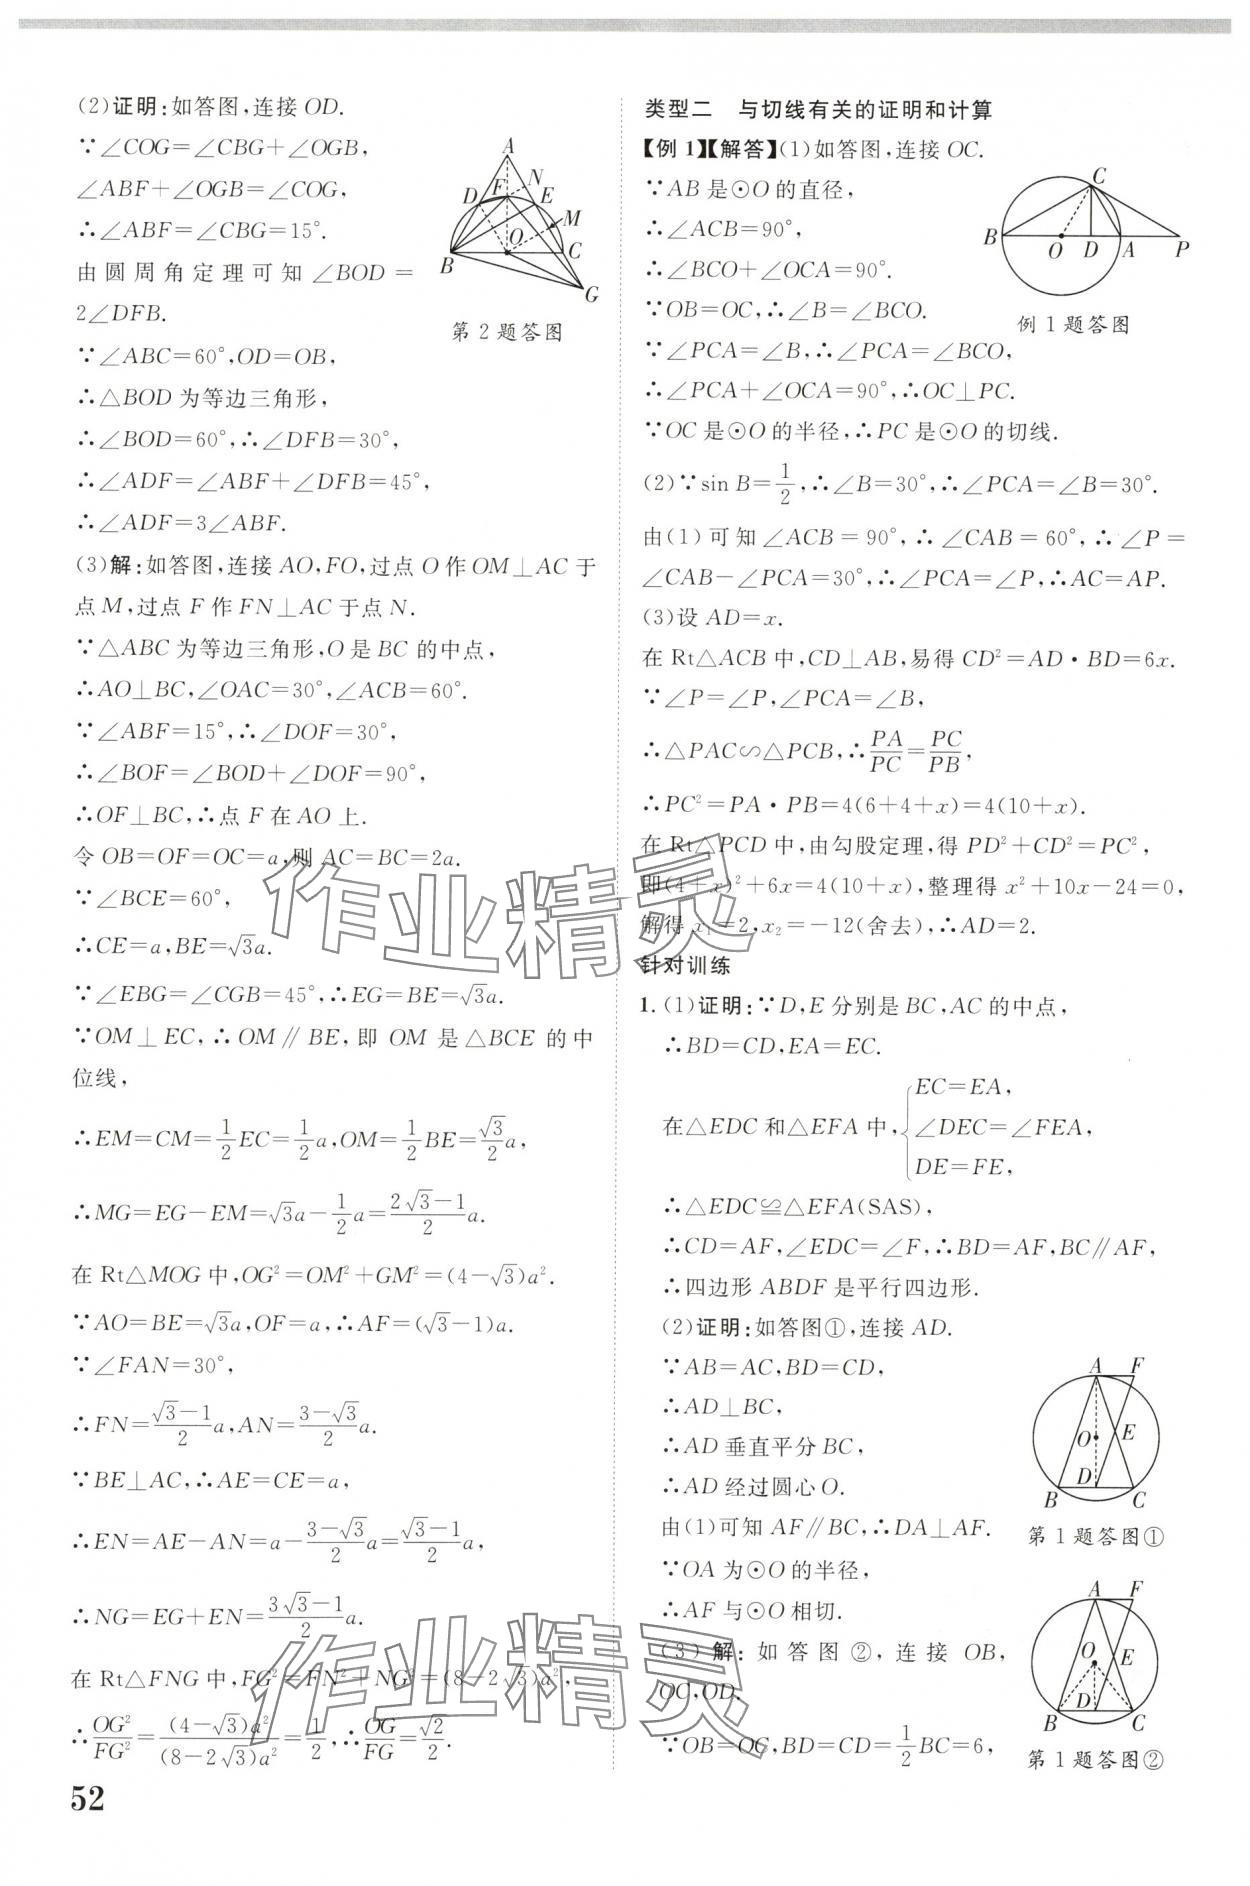 (2)证明:如答图,连接 OD.
∵∠COG=∠CBG+∠OGB,
∠ABF+∠OGB=∠COG,
∴∠ABF=∠CBG=15°.
由圆周角定理可知∠BOD=
2∠DFB.
∵∠ABC=60°,OD=OB,
∴△BOD 为等边三角形,
∴∠BOD=60°,∴∠DFB=30°,
∴∠ADF=∠ABF+∠DFB=45°,
∴∠ADF=3∠ABF.
A
D F N E M
B O C
G
第 2 题答图
(3)解:如答图,连接 AO,FO,过点 O 作 OM⊥AC 于
点 M,过点 F 作 FN⊥AC 于点 N.
∵△ABC 为等边三角形,O 是 BC 的中点,
∴AO⊥BC,∠OAC=30°,∠ACB=60°.
∵∠ABF=15°,∴∠DOF=30°,
∴∠BOF=∠BOD+∠DOF=90°,
∴OF⊥BC,∴点 F 在 AO 上.
令 OB=OF=OC=a,则 AC=BC=2a.
∵∠BCE=60°,
∴CE=a,BE=√3a.
∵∠EBG=∠CGB=45°,∴EG=BE=√3a.
∵OM⊥EC,∴OM∥BE,即 OM 是△BCE 的中
位线,
∴EM=CM=1/2EC=1/2a,OM=1/2BE=√3/2a,
∴MG=EG-EM=√3a-1/2a=(2√3-1)/2a.
在 Rt△MOG 中,OG²=OM²+GM²=(4-√3)a².
∵AO=BE=√3a,OF=a,∴AF=(√3-1)a.
∵∠FAN=30°,
∴FN=(√3-1)/2a,AN=(3-√3)/2a.
∵BE⊥AC,∴AE=CE=a,
∴EN=AE-AN=a-(3-√3)/2a=(√3-1)/2a,
∴NG=EG+EN=(3√3-1)/2a.
在 Rt△FNG 中,FG²=FN²+NG²=(8-2√3)a²,
∴OG²/FG²=(4-√3)a²/(8-2√3)a²=1/2,∴OG/FG=√2/2.
52
类型二 与切线有关的证明和计算
【例 1】【解答】(1)如答图,连接 OC.
∵AB 是⊙O 的直径,
∴∠ACB=90°,
∴∠BCO+∠OCA=90°.
∵OB=OC,∴∠B=∠BCO.
∵∠PCA=∠B,∴∠PCA=∠BCO,
∴∠PCA+∠OCA=90°,∴OC⊥PC.
∵OC 是⊙O 的半径,∴PC 是⊙O 的切线.
C
B O D A P
例 1 题答图
(2)∵sin B=1/2,∴∠B=30°,∴∠PCA=∠B=30°.
由(1)可知∠ACB=90°,∴∠CAB=60°,∴∠P=
∠CAB-∠PCA=30°,∴∠PCA=∠P,∴AC=AP.
(3)设 AD=x.
在 Rt△ACB 中,CD⊥AB,易得 CD²=AD·BD=6x.
∵∠P=∠P,∠PCA=∠B,
∴△PAC∽△PCB,∴PA/PC=PC/PB,
∴PC²=PA·PB=4(6+4+x)=4(10+x).
在 Rt△PCD 中,由勾股定理,得 PD²+CD²=PC²,
即(4+x)²+6x=4(10+x),整理得 x²+10x-24=0,
解得 x₁=2,x₂=-12(舍去),∴AD=2.
针对训练
1.(1)证明:∵D,E 分别是 BC,AC 的中点,
∴BD=CD,EA=EC.
在△EDC 和△EFA 中,{EC=EA,
∠DEC=∠FEA,
DE=FE,
∴△EDC≌△EFA(SAS),
∴CD=AF,∠EDC=∠F,∴BD=AF,BC∥AF,
∴四边形 ABDF 是平行四边形.
(2)证明:如答图①,连接 AD.
∵AB=AC,BD=CD,
∴AD⊥BC,
∴AD 垂直平分 BC,
∴AD 经过圆心 O.
由(1)可知 AF∥BC,∴DA⊥AF.
∵OA 为⊙O 的半径,
∴AF 与⊙O 相切.
A F
O E
B D C
第 1 题答图①
(3)解:如答图②,连接 OB,
OC,OD.
∵OB=OC,BD=CD=1/2BC=6,
A F
O E
B D C
第 1 题答图②
作业精灵
作业精灵